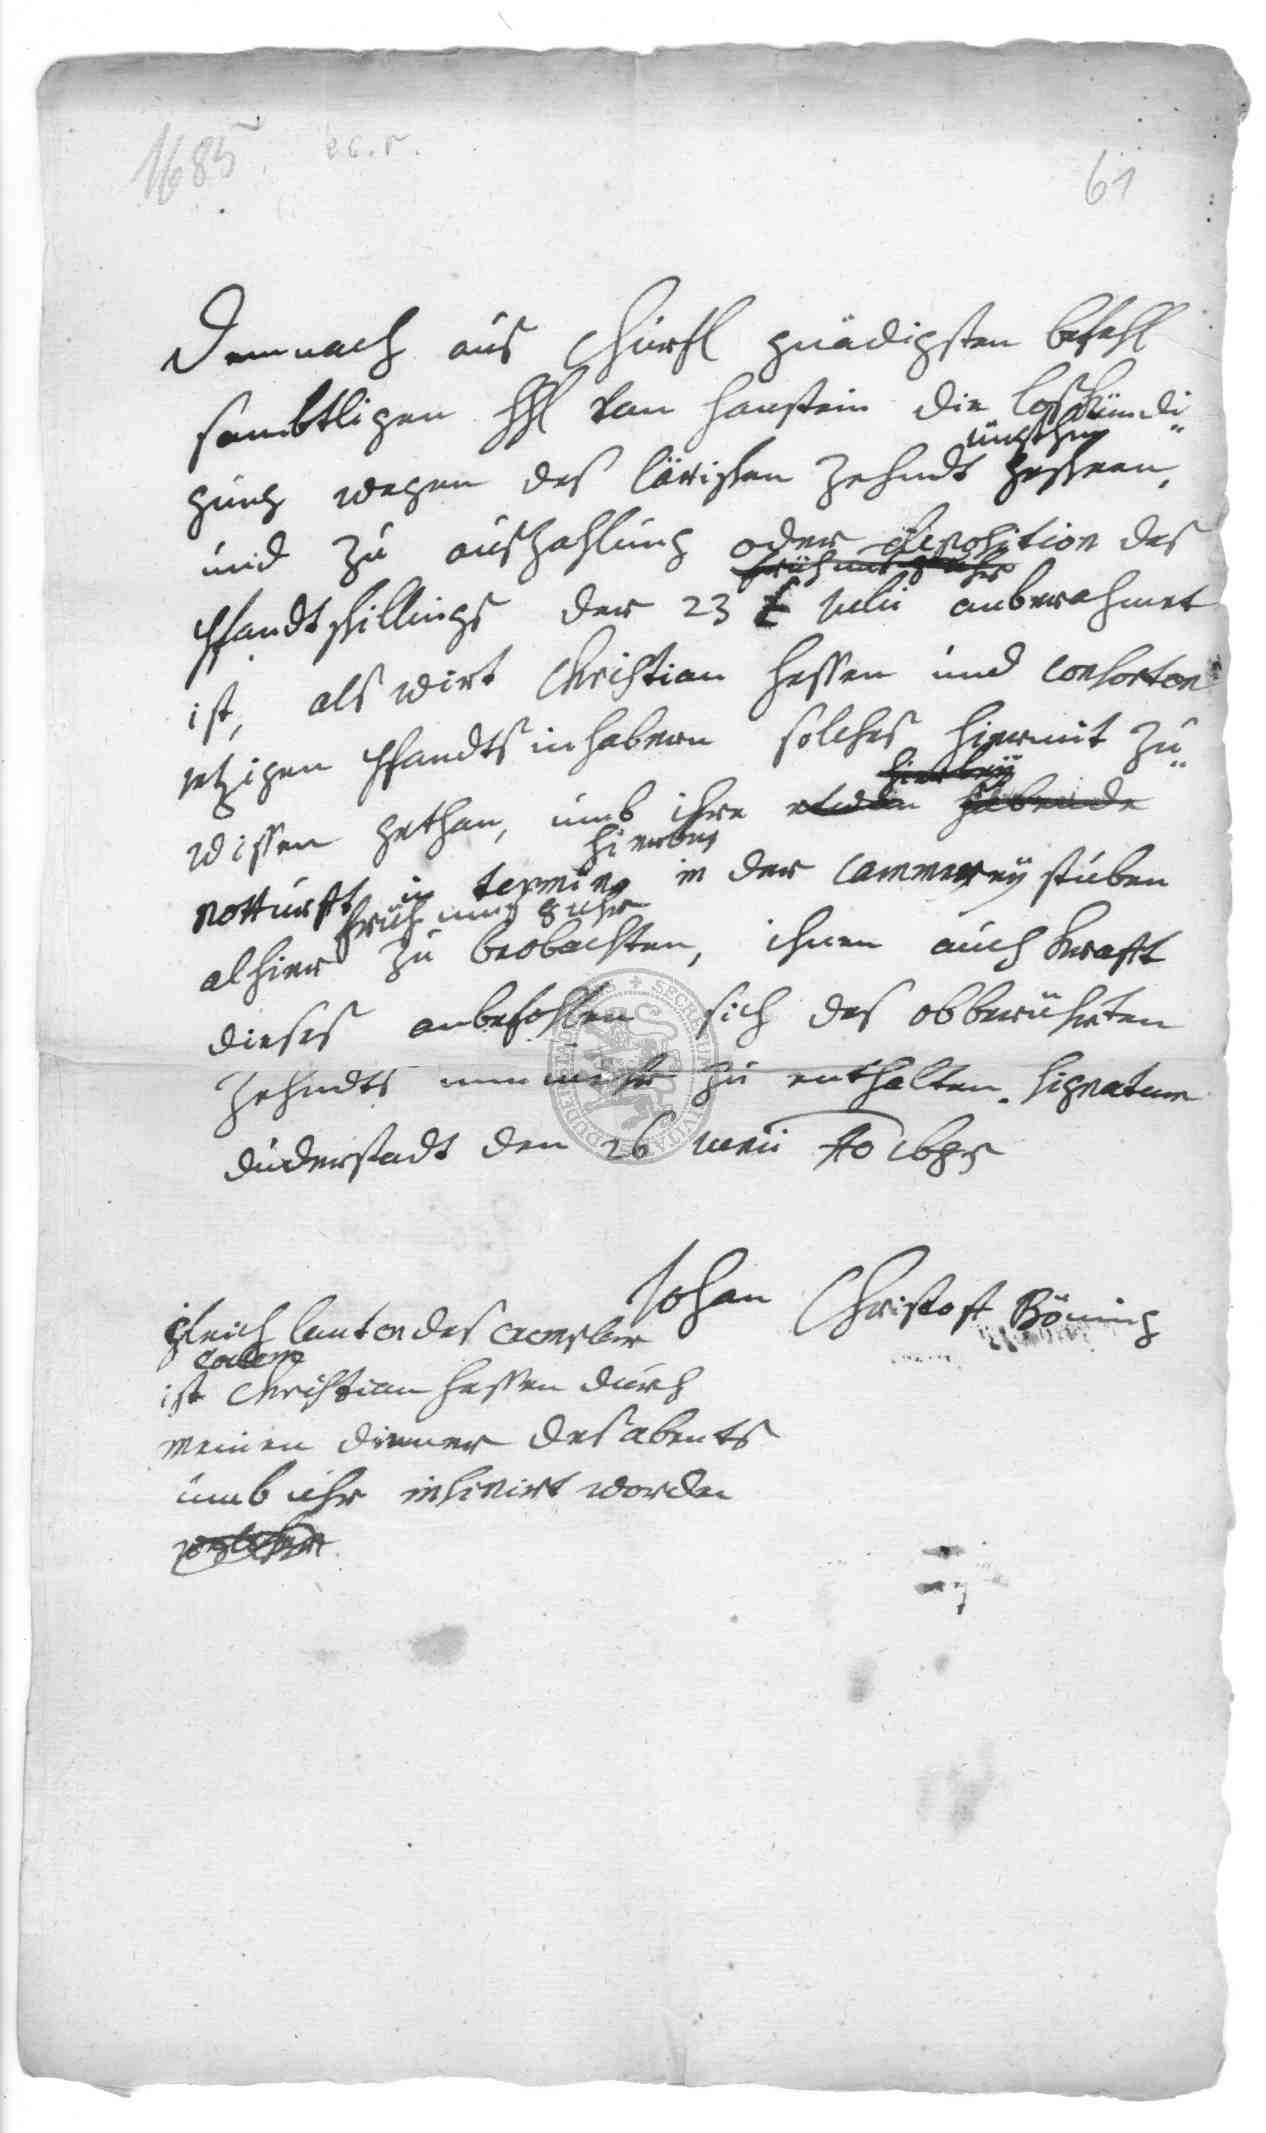 1685
61
Demnach aus Churfl gnädigsten befehl
sambtligen HHl von Hanstein die loßkündi
gung wegen des Zehndt geschehen,
jüngsthin
und zu außzahlung oder deposition des
früh umb 8 uhr
Pfandtschillings der 23 t Julii anberahmet
ist, als wirt Christian Hessen und Consorten
jetzigen Pfandtsinhabern solches hiermit zu
wissen gethan, umb ihre etwan habende
hierbey
notturfft in termino in der Cammereÿ stuben
hierbey
früh umb 8 uhr
alhier zu beobachten, ihnen auch krafft
dieses anbefohlen sich des obberührten
Zehndts nunmehr zu enthalten. Signatum
Duderstadt den 26 Ao 1685
Johan Christoff Böning
gleich lautendes
eodem
ist Christian Hessen durch
meinen diener des abents
umb uhr insinuirt worden